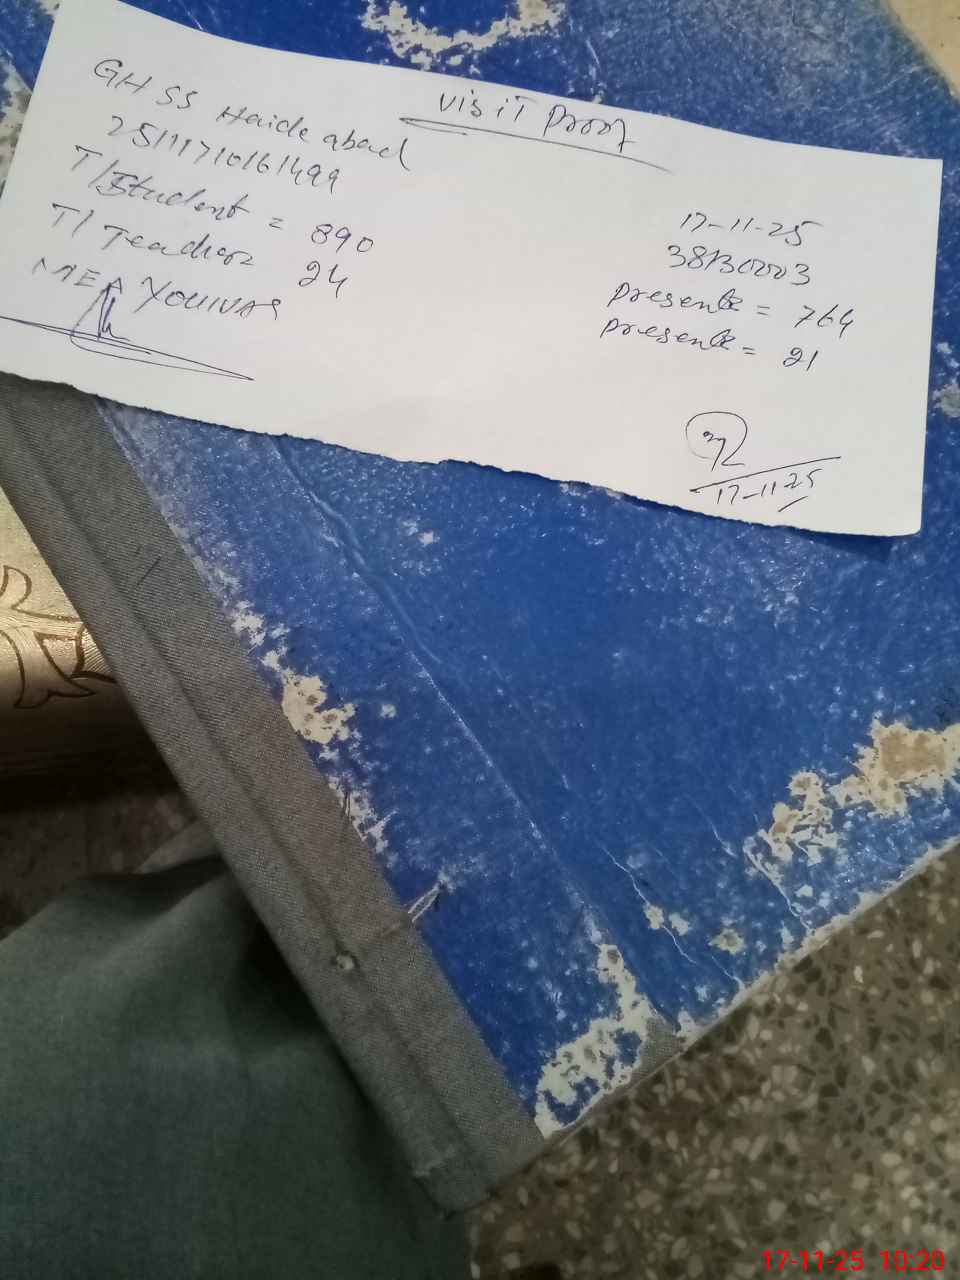 Visit Proof
GHSS Haiderabad
17-11-25
38130003
T/Student = 890
presente = 764
T/Teacher 24
presente = 21
MEA YOUNAS
17-11-25
17-11-25 10:20